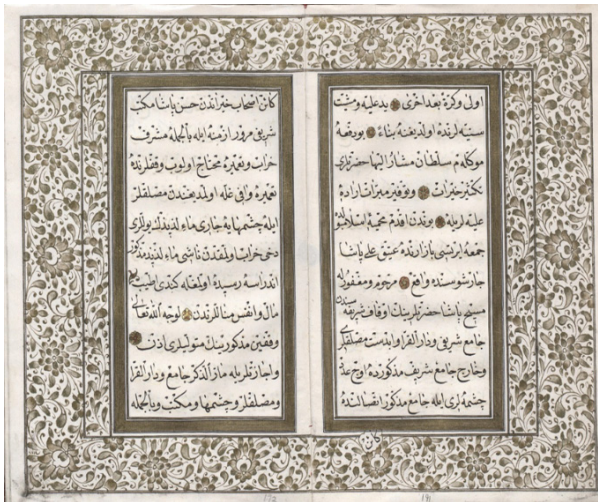 اولى وكرة بعد اخرى يد عليه وسنت
سنيه لرنده اولديغنه بناء بو دفعه
موكله م سلطان مشار اليها حضرتلرى
تكثير خيرات وتوفير ميراث اراده
عليه لريله بوندن اقدم محميه اسلامبولده
جمعه ايرتسى بازارنده عتيق على پاشا
چارشوسنده واقع مرحوم ومغفور له
مسيح پاشا حضرتلرينك اوقاف شريفه سندن
جامع شريف ودار القرا وابدست مصلقلرى
وخارج جامع شريف مذكورده اوچ عدد
چشمه لرى ايله جامع مذكور اتصالنده
كائن اصحاب خيراتدن حسن پاشا مكتب
شريفى مرور ازمنه ايله بالجمله مشرف
خراب وتعميره محتاج اولوب وقفلرنده
تعميره وافى غله اولمديغندن مصلقلر
ايله چشمهايه جارى ماء لذيذك يوللرى
دخى خراب اولمقدن ناشى ماء لذيذ مذكور
اندراسه رسيده اولمغله كندى طيب
مال وانفس منالرندن لوجه الله تعالى
وقفين مذكورينك متوليلرى اذن
واجازتلريله مار الذكر جامع ودار القرا
ومصلقلر وچشمها ومكتب وبالجمله